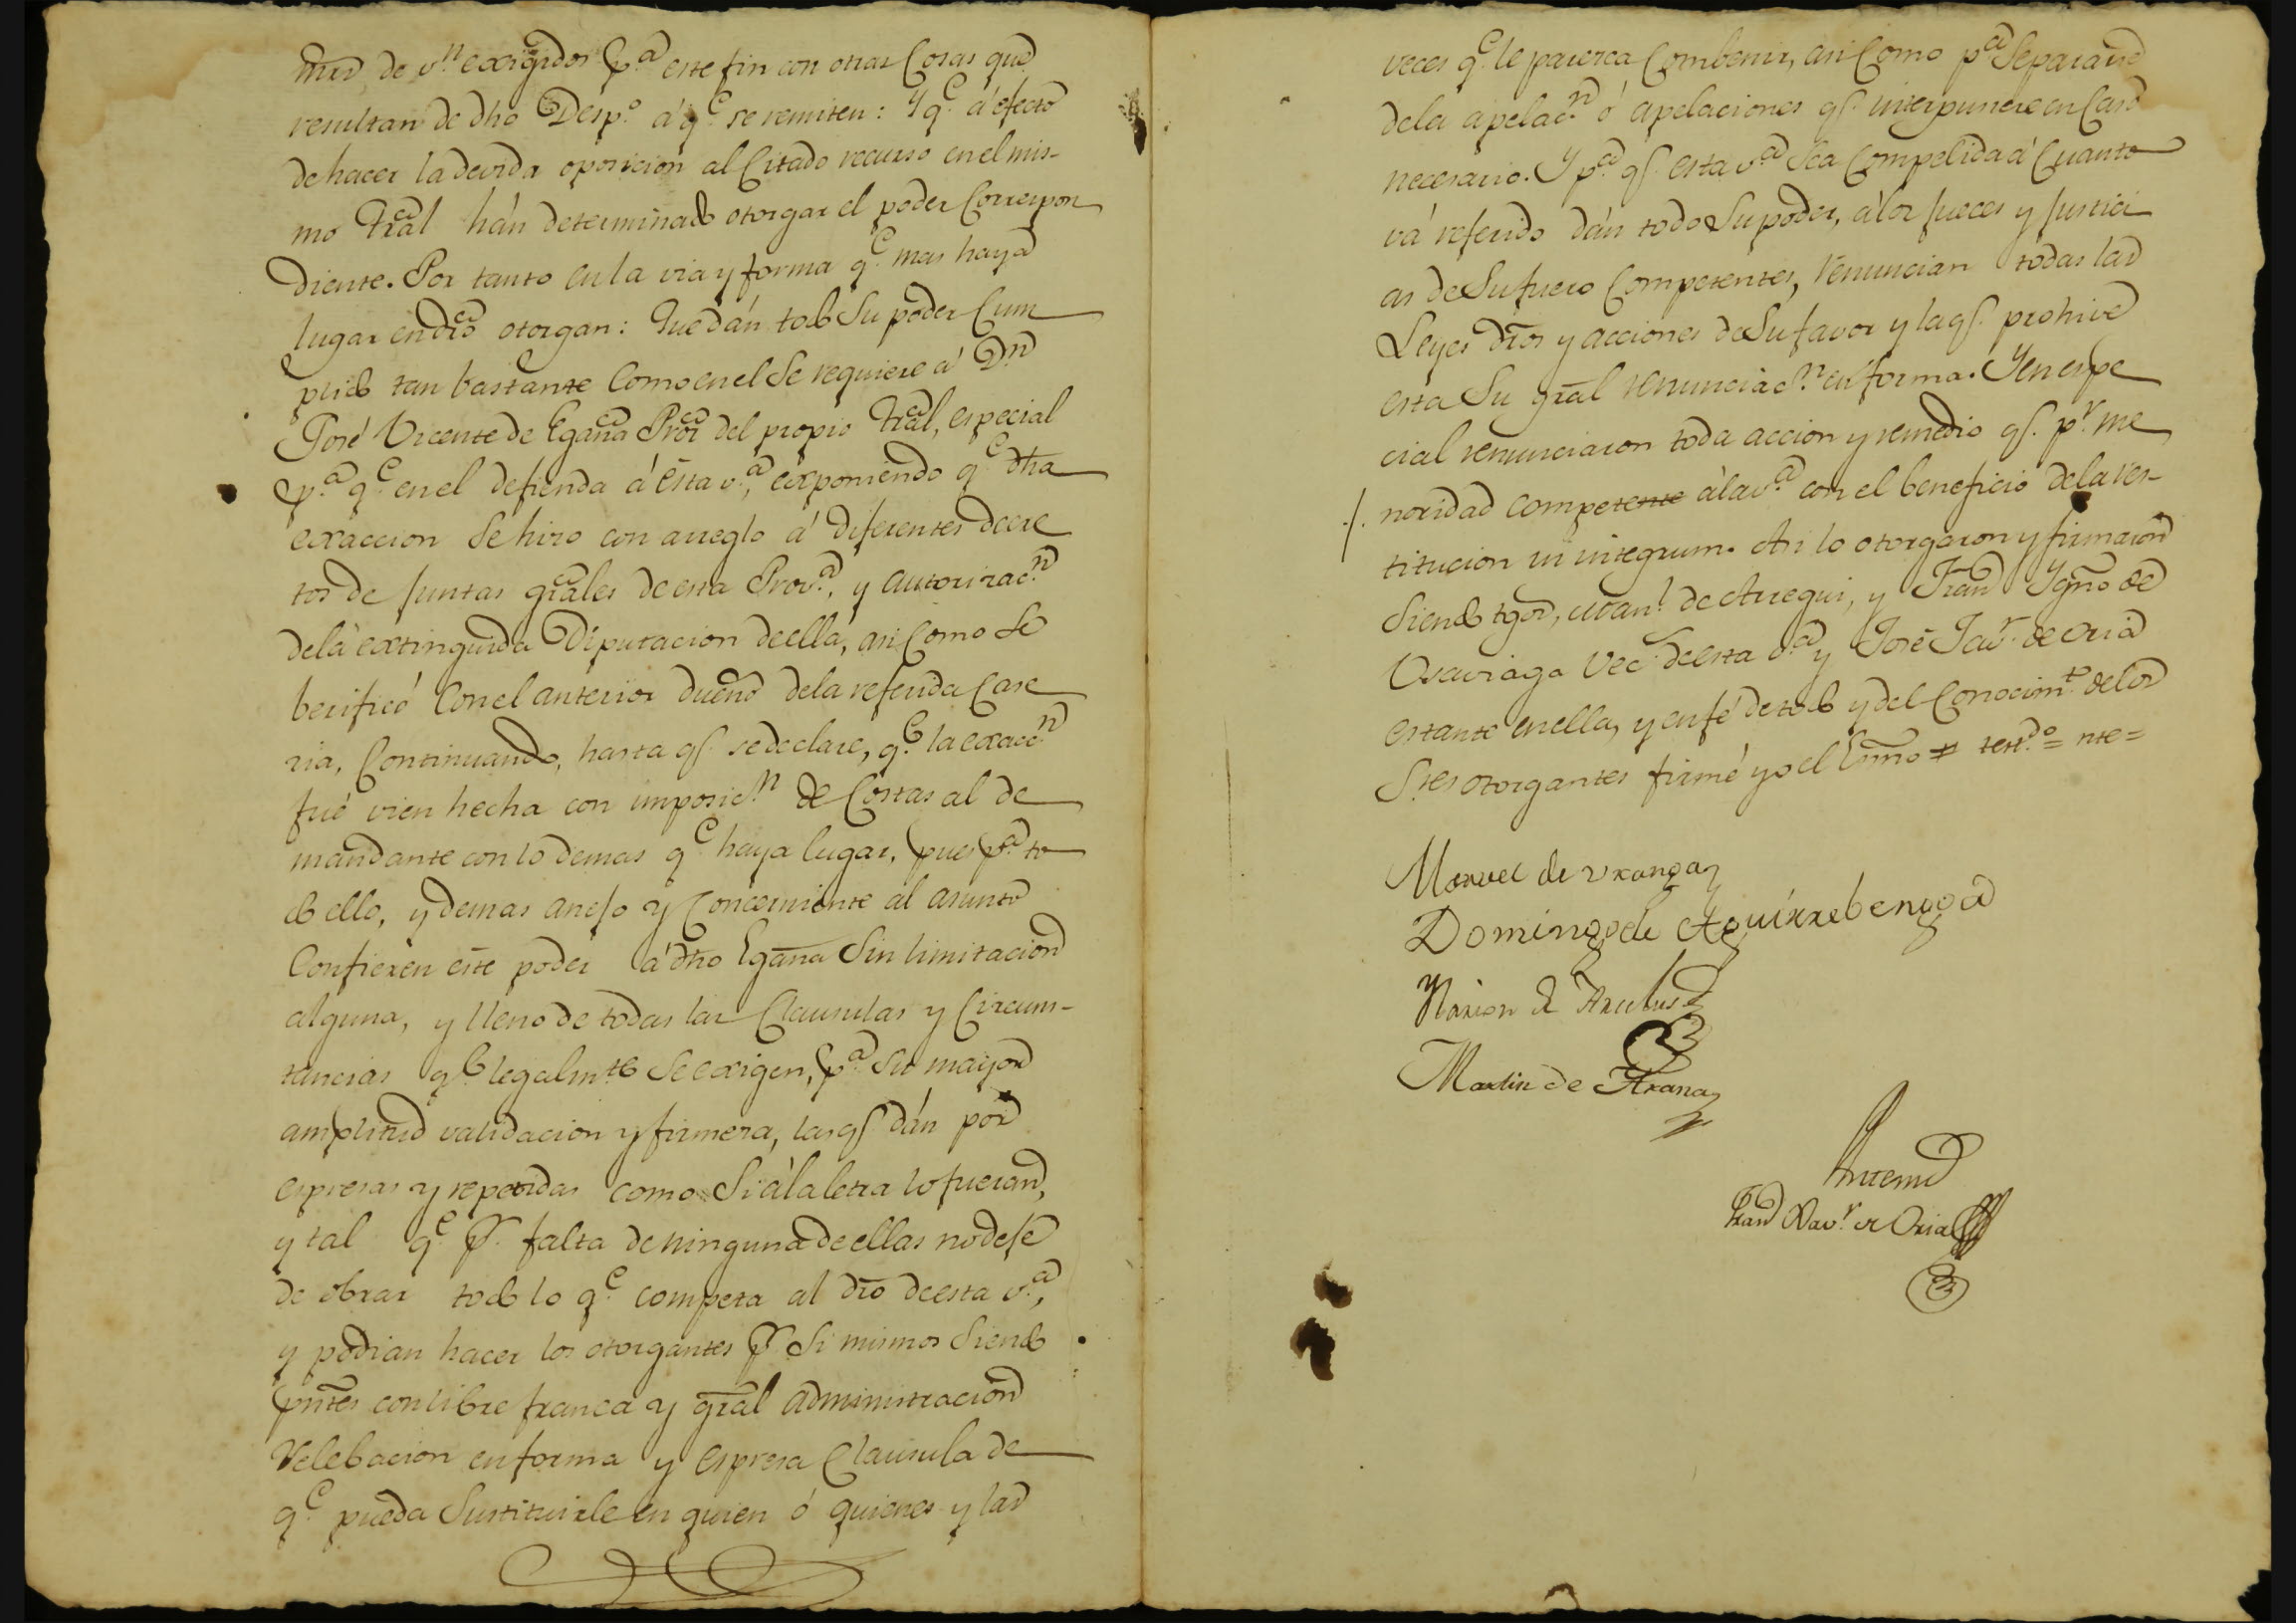 mrs de v.n exigidos p.a este fin con otras Cosas que
resultan de dho Desp.o á q.e se remiten: Y q.e á efecto
de hacer la devida oposicion al Citado recurso en el mis-
mo Tral hán determinado otorgar el poder Correspon
diente. Por tanto en la via y forma q.e mas haya
lugar en dro otorgan: Que dán todo Su poder Cum
plido tan bastante Como en el Se requiere á D.n
José Vicente de Egaña Pror del propio Tral, especial
p.a q.e en el defienda á ésta v.a, exponiendo q.e dha
exaccion Se hizo con arreglo á diferentes decre
tos de Juntas grales de esta Prov.a, y autorizac.n
de la extinguida Diputacion de ella, asi Como Se
berificó Con el anterior dueño de la referida Case
ria, Continuando, hasta q.e se declare, q.e la exacc.n
fué vien hecha con imposic.n de Costas al de
mandante con lo demas q.e haya lugar, pues p.a to
do ello, y demas anejo y Concerniente al asunto
Confieren este poder á dho Egaña Sin limitacion
alguna, y lleno de todas las Clausulas y Circuns-
tancias q.e legalm.te Se exigen, p.a su mayor
amplitud validacion y firmeza, las q.e dán por
espresas y repetidas como Si á la letra lo fueran,
y tal q.e p.r falta de ninguna de ellas no deje
de obrar todo lo q.e competa al dro de esta v.a,
y podian hacer los otorgantes p.r Si mismos Siendo
pntes con libre franca y gral administracion
Relebacion en forma y espresa Clausula de
q.e pueda Sustituirle en quien ó quienes y las
veces q.e le parezca Combenir, asi Como p.a Separarse
de la apelac.n ó apelaciones q.e interpusiere en Caso
necesario. Y p.a q.e esta v.a Sea Compelida á Cuanto
vá referido dán todo Su poder, á los Jueces y Justici
as de Su fuero Competentes, renuncian todas las
Leyes dros y acciones de Su favor y la q.e prohive
esta Su gral renunciac.n en forma. Y en espe
cial renunciaron toda accion y remedio q.e p.r me
noridad competente á la v.a con el beneficio de la res-
titucion in integrum. Asi lo otorgaron y firmaron
Siendo tgos, Man.l de Arregui, y Fran.co Ygn.o de
Usaviaga Vec.s de esta v.a y José Jav.r de Oria
estante en ella, y en fé de todo y del Conocim.to de los
S.res otorgantes firmé yo el Esno = test.do = nte =
Manuel de Uranga
Domingo de Aguirrebengoa
Martin de Arana
Ante mi
Fran.co Xav.r de Oria